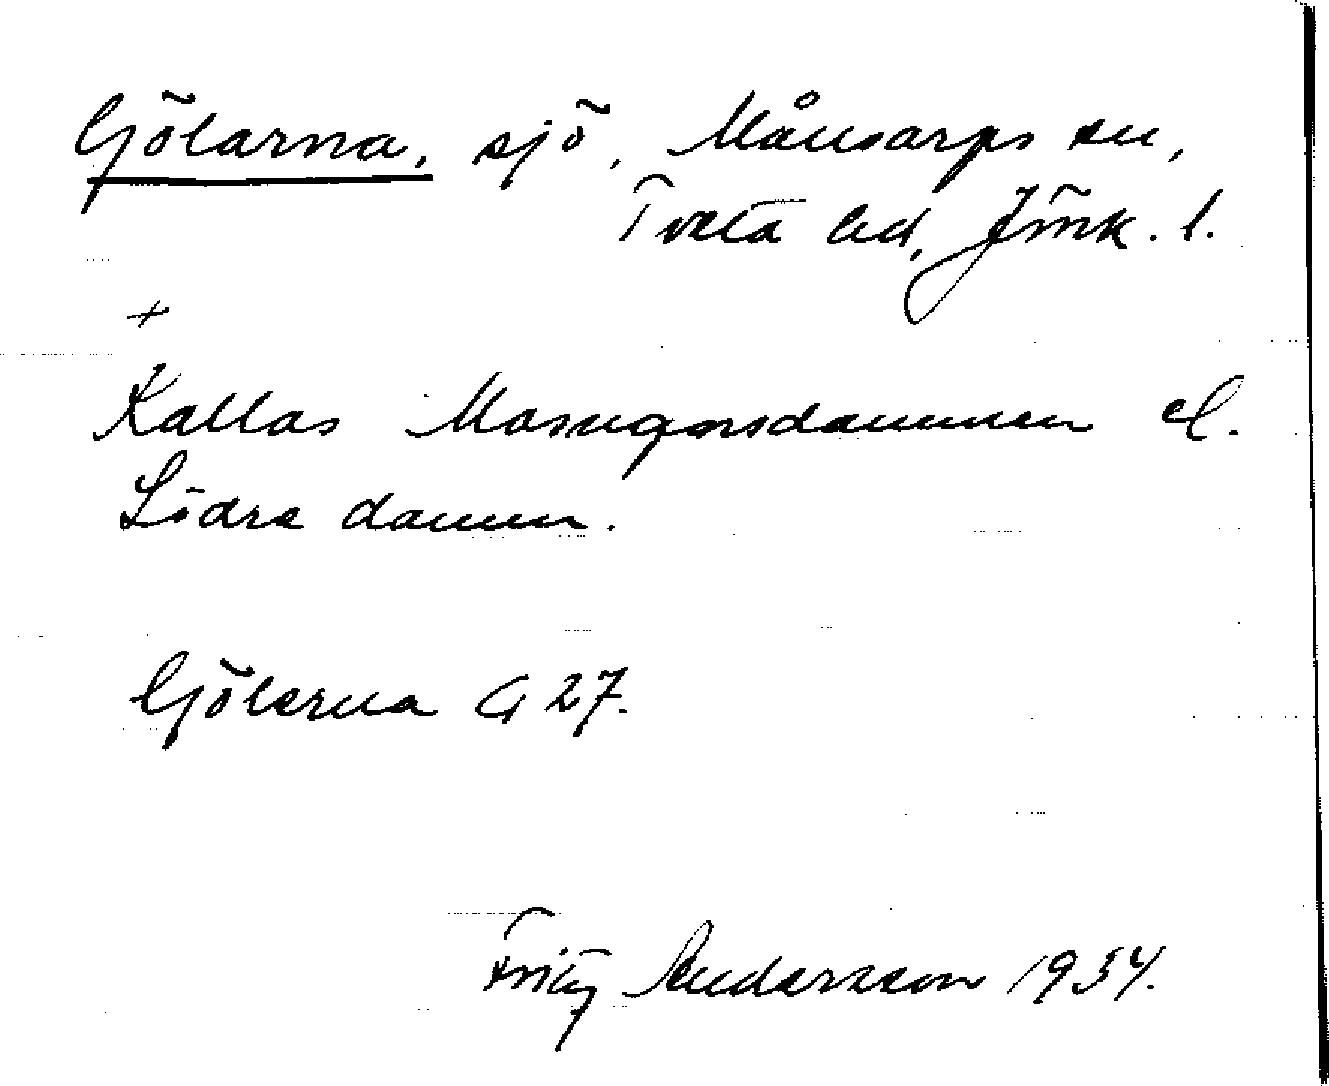 Gölarna, sjö, Månsarps sn,
Tveta hd, Jönk. l.
+
Kallas Masugnsdammen el.
Södra dammen.
Gölarna G 27.
Fritz Andersson 1934.